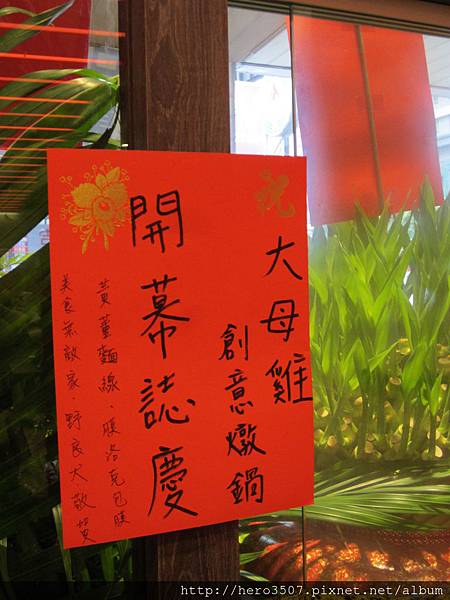 祝
大母雞
創意燉鍋
開幕誌慶
黃薑麵線、膜洛克包膜
美食無敵家、野良犬敬賀
http://hero3507.pixnet.net/album